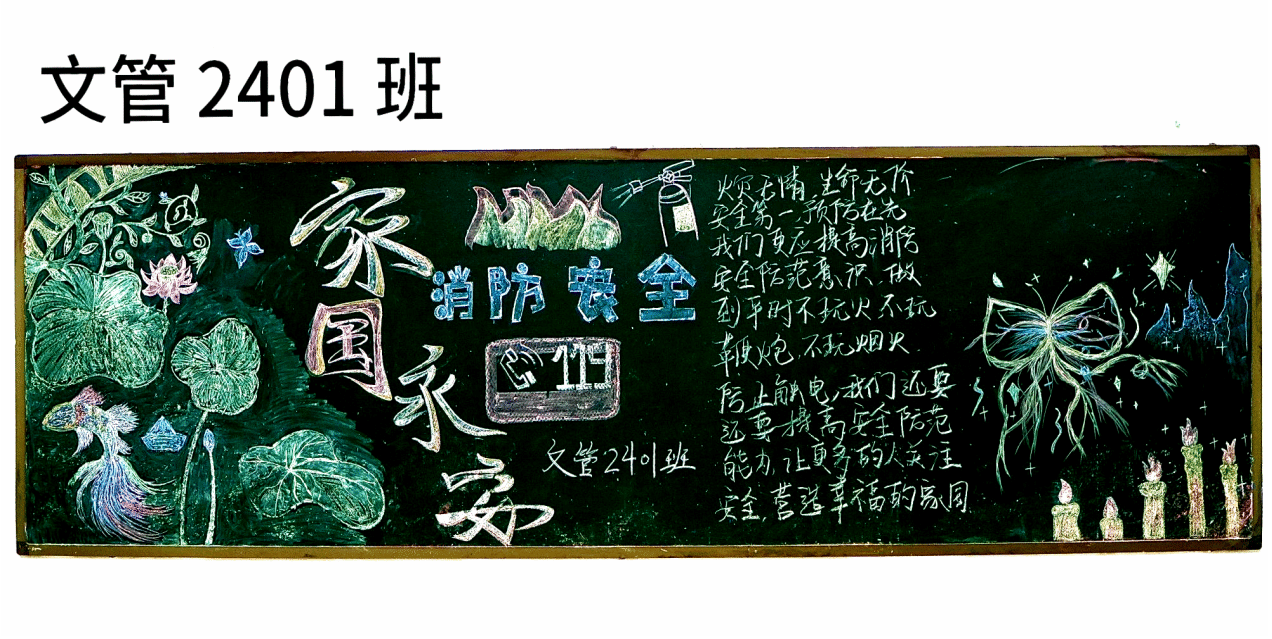 文管 2401 班
家国永安
消防安全
119
文管2401班
火灾无情 生命无价
安全第一,预防在先
我们更应提高消防
安全防范意识,做
到平时不玩火不玩
鞭炮,不玩烟火
防止触电,我们还要
还要提高安全防范
能力,让更多的人关注
安全,营造幸福的家园